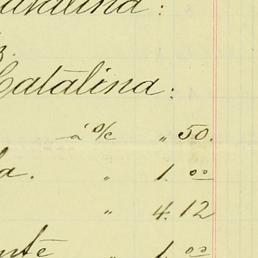 Catalina:
Catalina:
á o/c „ 50.
a. „ 1. 00
„ 4. 12
nte „ 1. 00